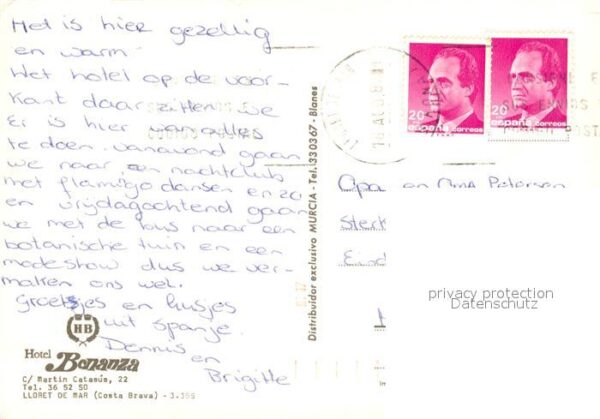 Het is hier gezellig
en warm.
Het hotel op de voor-
kant daar zitten we
Er is hier van alles
te doen. vanavond gaan
we naar een nachtclub
met flamigo dansen en zo
en vrijdagochtend gaan
we met de bus naar een
botanische tuin en een
modeshow dus we ver-
maken ons wel.
Groetsjes en kusjes
uit Spanje.
Dennis
en
Brigitte
HB
Hotel Bonanza
C/ Martin Catasús, 22
Tel. 36 52 50
LLORET DE MAR (Costa Brava) - 3.355
Distribuidor exclusivo MURCIA - Tel. 330367 - Blanes
20
españa correos
20
españa correos
Opa en Oma Petersen
privacy protection
Datenschutz